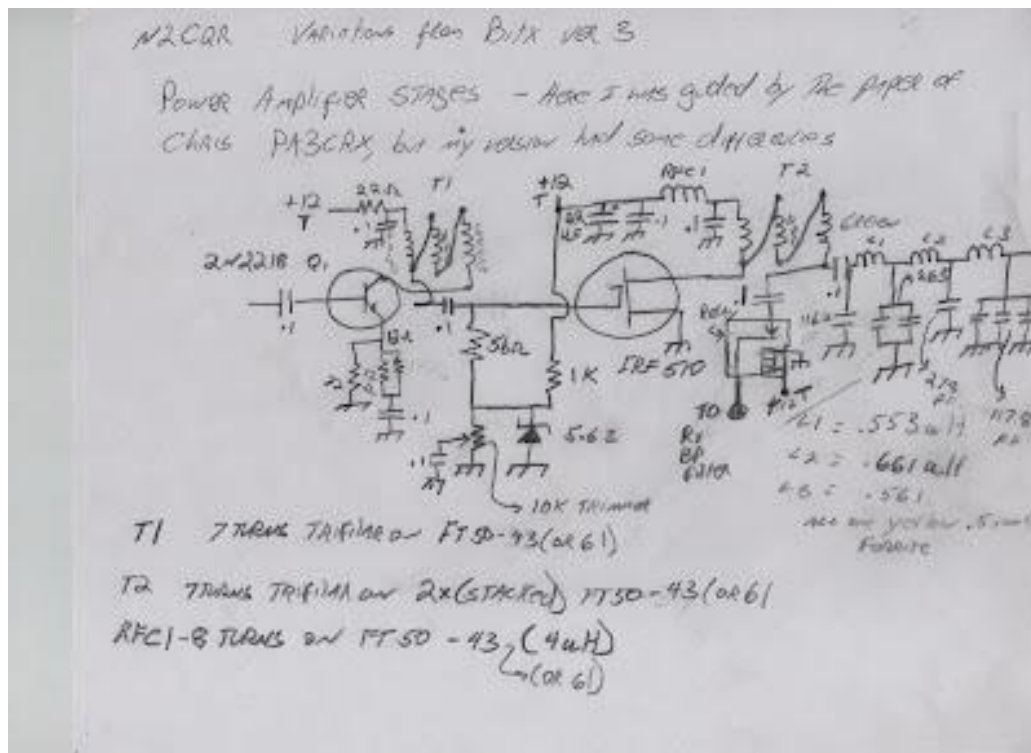 N2CQR Variations from Bitx ver 3
Power Amplifier STAGES - Here I was guided by The paper of
Chris PA3CRX, but my version had some differences
22Ω T1 +12 T RFC1 T2
+12 T .1 .1 .1
2N2218 Q1
L1 L2 L3
.1 .1 .1
56Ω 1K IRF510
TO
5.6Z +12 T
.1
10K TRIMMER
L1 = .553 uH
L2 = .661 uH
= .561
T1 7 TURNS TRIFILAR ON FT50-43 (OR 61)
T2 7 TURNS TRIFILAR ON 2x (STACKED) FT50-43 (OR 61
RFC1-8 TURNS ON FT50-43 (4uH)
(OR 61)